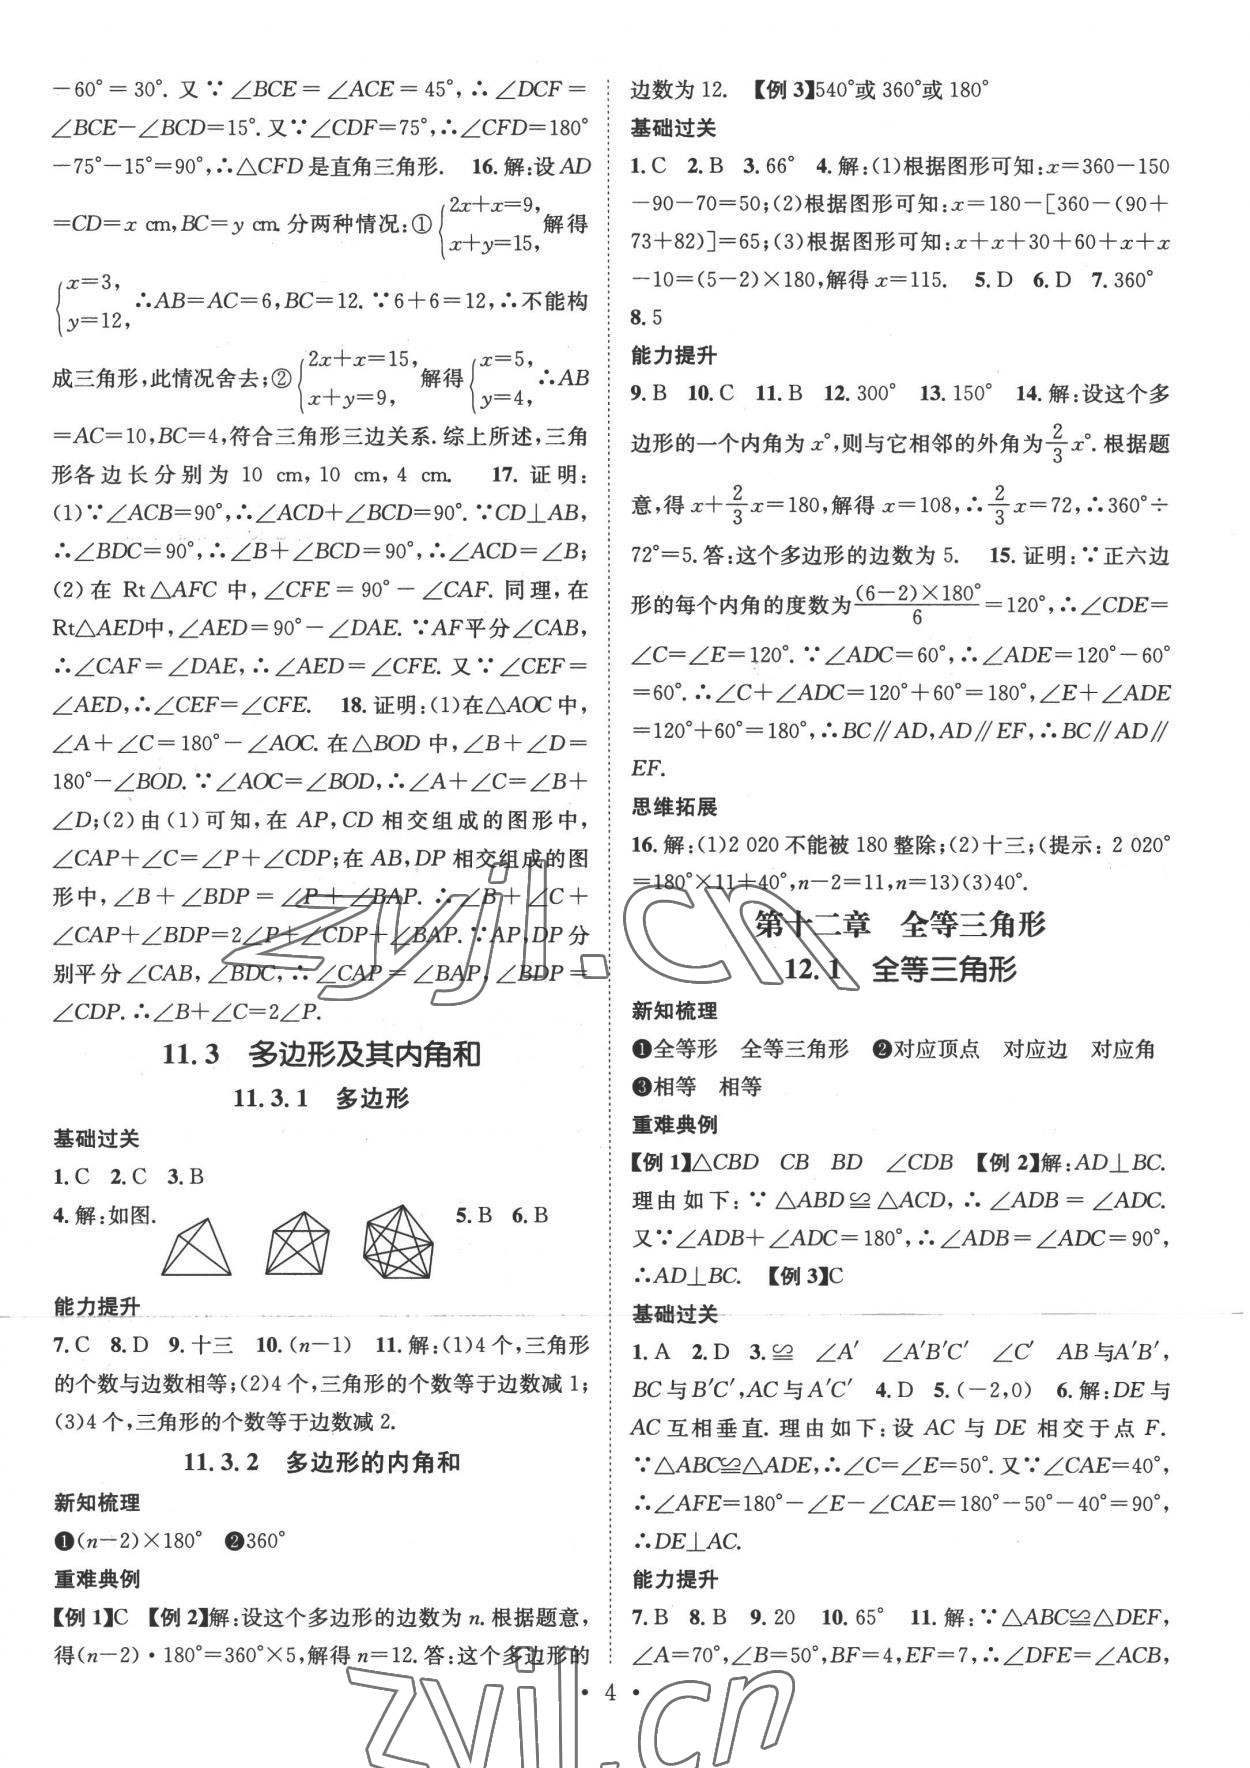 －60°＝30°. 又∵∠BCE＝∠ACE＝45°,∴∠DCF＝
∠BCE－∠BCD＝15°. 又∵∠CDF＝75°,∴∠CFD＝180°
－75°－15°＝90°,∴△CFD是直角三角形. 16. 解:设AD
＝CD＝x cm,BC＝y cm. 分两种情况:①{2x＋x＝9, x＋y＝15, 解得
{x＝3, y＝12, ∴AB＝AC＝6,BC＝12. ∵6＋6＝12,∴不能构
成三角形,此情况舍去;②{2x＋x＝15, x＋y＝9, 解得{x＝5, y＝4, ∴AB
＝AC＝10,BC＝4,符合三角形三边关系. 综上所述,三角
形各边长分别为 10 cm,10 cm,4 cm. 17. 证明:
(1)∵∠ACB＝90°,∴∠ACD＋∠BCD＝90°. ∵CD⊥AB,
∴∠BDC＝90°,∴∠B＋∠BCD＝90°,∴∠ACD＝∠B;
(2)在 Rt△AFC 中,∠CFE＝90°－∠CAF. 同理,在
Rt△AED中,∠AED＝90°－∠DAE. ∵AF平分∠CAB,
∴∠CAF＝∠DAE,∴∠AED＝∠CFE. 又∵∠CEF＝
∠AED,∴∠CEF＝∠CFE. 18. 证明:(1)在△AOC中,
∠A＋∠C＝180°－∠AOC. 在△BOD中,∠B＋∠D＝
180°－∠BOD. ∵∠AOC＝∠BOD,∴∠A＋∠C＝∠B＋
∠D;(2)由(1)可知,在AP,CD相交组成的图形中,
∠CAP＋∠C＝∠P＋∠CDP;在AB,DP相交组成的图
形中,∠B＋∠BDP＝∠P＋∠BAP. ∴∠B＋∠C＋
∠CAP＋∠BDP＝2∠P＋∠CDP＋∠BAP. ∵AP,DP分
别平分∠CAB,∠BDC,∴∠CAP＝∠BAP,∠BDP＝
∠CDP. ∴∠B＋∠C＝2∠P.
11.3 多边形及其内角和
11.3.1 多边形
基础过关
1. C 2. C 3. B
4. 解:如图. 5. B 6. B
能力提升
7. C 8. D 9. 十三 10. (n－1) 11. 解:(1)4个,三角形
的个数与边数相等;(2)4个,三角形的个数等于边数减1;
(3)4个,三角形的个数等于边数减2.
11.3.2 多边形的内角和
新知梳理
❶(n－2)×180° ❷360°
重难典例
【例1】C 【例2】解:设这个多边形的边数为n. 根据题意,
得(n－2)·180°＝360°×5,解得n＝12. 答:这个多边形的
边数为12. 【例3】540°或360°或180°
基础过关
1. C 2. B 3. 66° 4. 解:(1)根据图形可知:x＝360－150
－90－70＝50;(2)根据图形可知:x＝180－[360－(90＋
73＋82)]＝65;(3)根据图形可知:x＋x＋30＋60＋x＋x
－10＝(5－2)×180,解得x＝115. 5. D 6. D 7. 360°
8. 5
能力提升
9. B 10. C 11. B 12. 300° 13. 150° 14. 解:设这个多
边形的一个内角为x°,则与它相邻的外角为2/3x°. 根据题
意,得x＋2/3x＝180,解得x＝108,∴2/3x＝72,∴360°÷
72°＝5. 答:这个多边形的边数为5. 15. 证明:∵正六边
形的每个内角的度数为(6－2)×180°/6＝120°,∴∠CDE＝
∠C＝∠E＝120°. ∵∠ADC＝60°,∴∠ADE＝120°－60°
＝60°. ∴∠C＋∠ADC＝120°＋60°＝180°,∠E＋∠ADE
＝120°＋60°＝180°,∴BC∥AD,AD∥EF,∴BC∥AD∥
EF.
思维拓展
16. 解:(1)2 020不能被180整除;(2)十三;(提示:2 020°
＝180°×11＋40°,n－2＝11,n＝13)(3)40°.
第十二章 全等三角形
12.1 全等三角形
新知梳理
❶全等形 全等三角形 ❷对应顶点 对应边 对应角
❸相等 相等
重难典例
【例1】△CBD CB BD ∠CDB 【例2】解:AD⊥BC.
理由如下:∵△ABD≌△ACD,∴∠ADB＝∠ADC.
又∵∠ADB＋∠ADC＝180°,∴∠ADB＝∠ADC＝90°,
∴AD⊥BC. 【例3】C
基础过关
1. A 2. D 3. ≌ ∠A′ ∠A′B′C′ ∠C′ AB与A′B′,
BC与B′C′,AC与A′C′ 4. D 5. (－2,0) 6. 解:DE与
AC互相垂直. 理由如下:设AC与DE相交于点F.
∵△ABC≌△ADE,∴∠C＝∠E＝50°. 又∵∠CAE＝40°,
∴∠AFE＝180°－∠E－∠CAE＝180°－50°－40°＝90°,
∴DE⊥AC.
能力提升
7. B 8. B 9. 20 10. 65° 11. 解:∵△ABC≌△DEF,
∠A＝70°,∠B＝50°,BF＝4,EF＝7,∴∠DFE＝∠ACB,
• 4 •
zyjl.cn
zyjl.cn